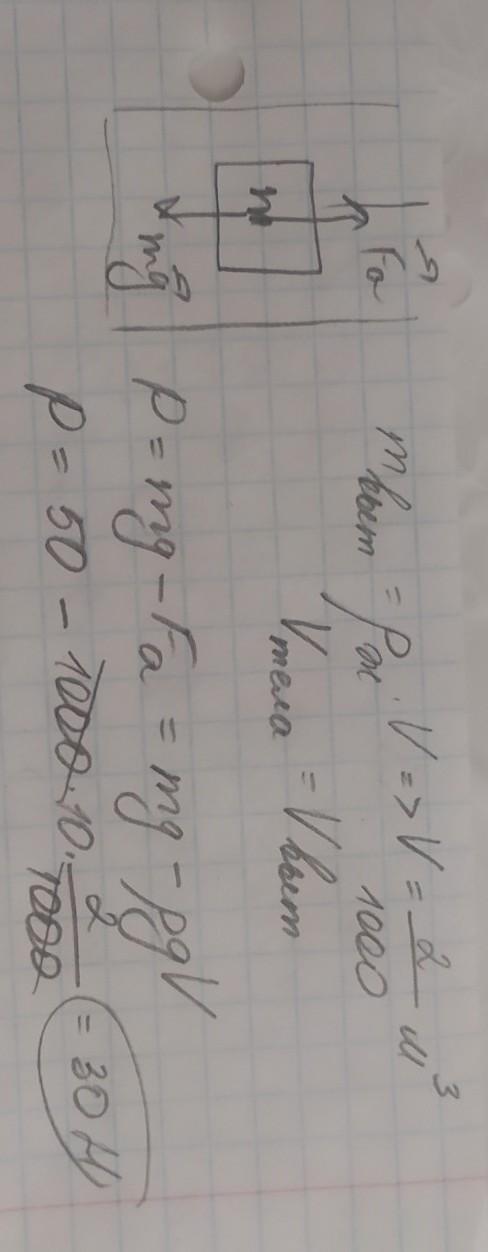 Fa
m
mg
mвыт = ρж · V => V = 2/1000 м³
Vтела = Vвыт
P = mg - Fa = mg - ρgV
P = 50 - 1000 · 10 · 2/1000 = 30 Н